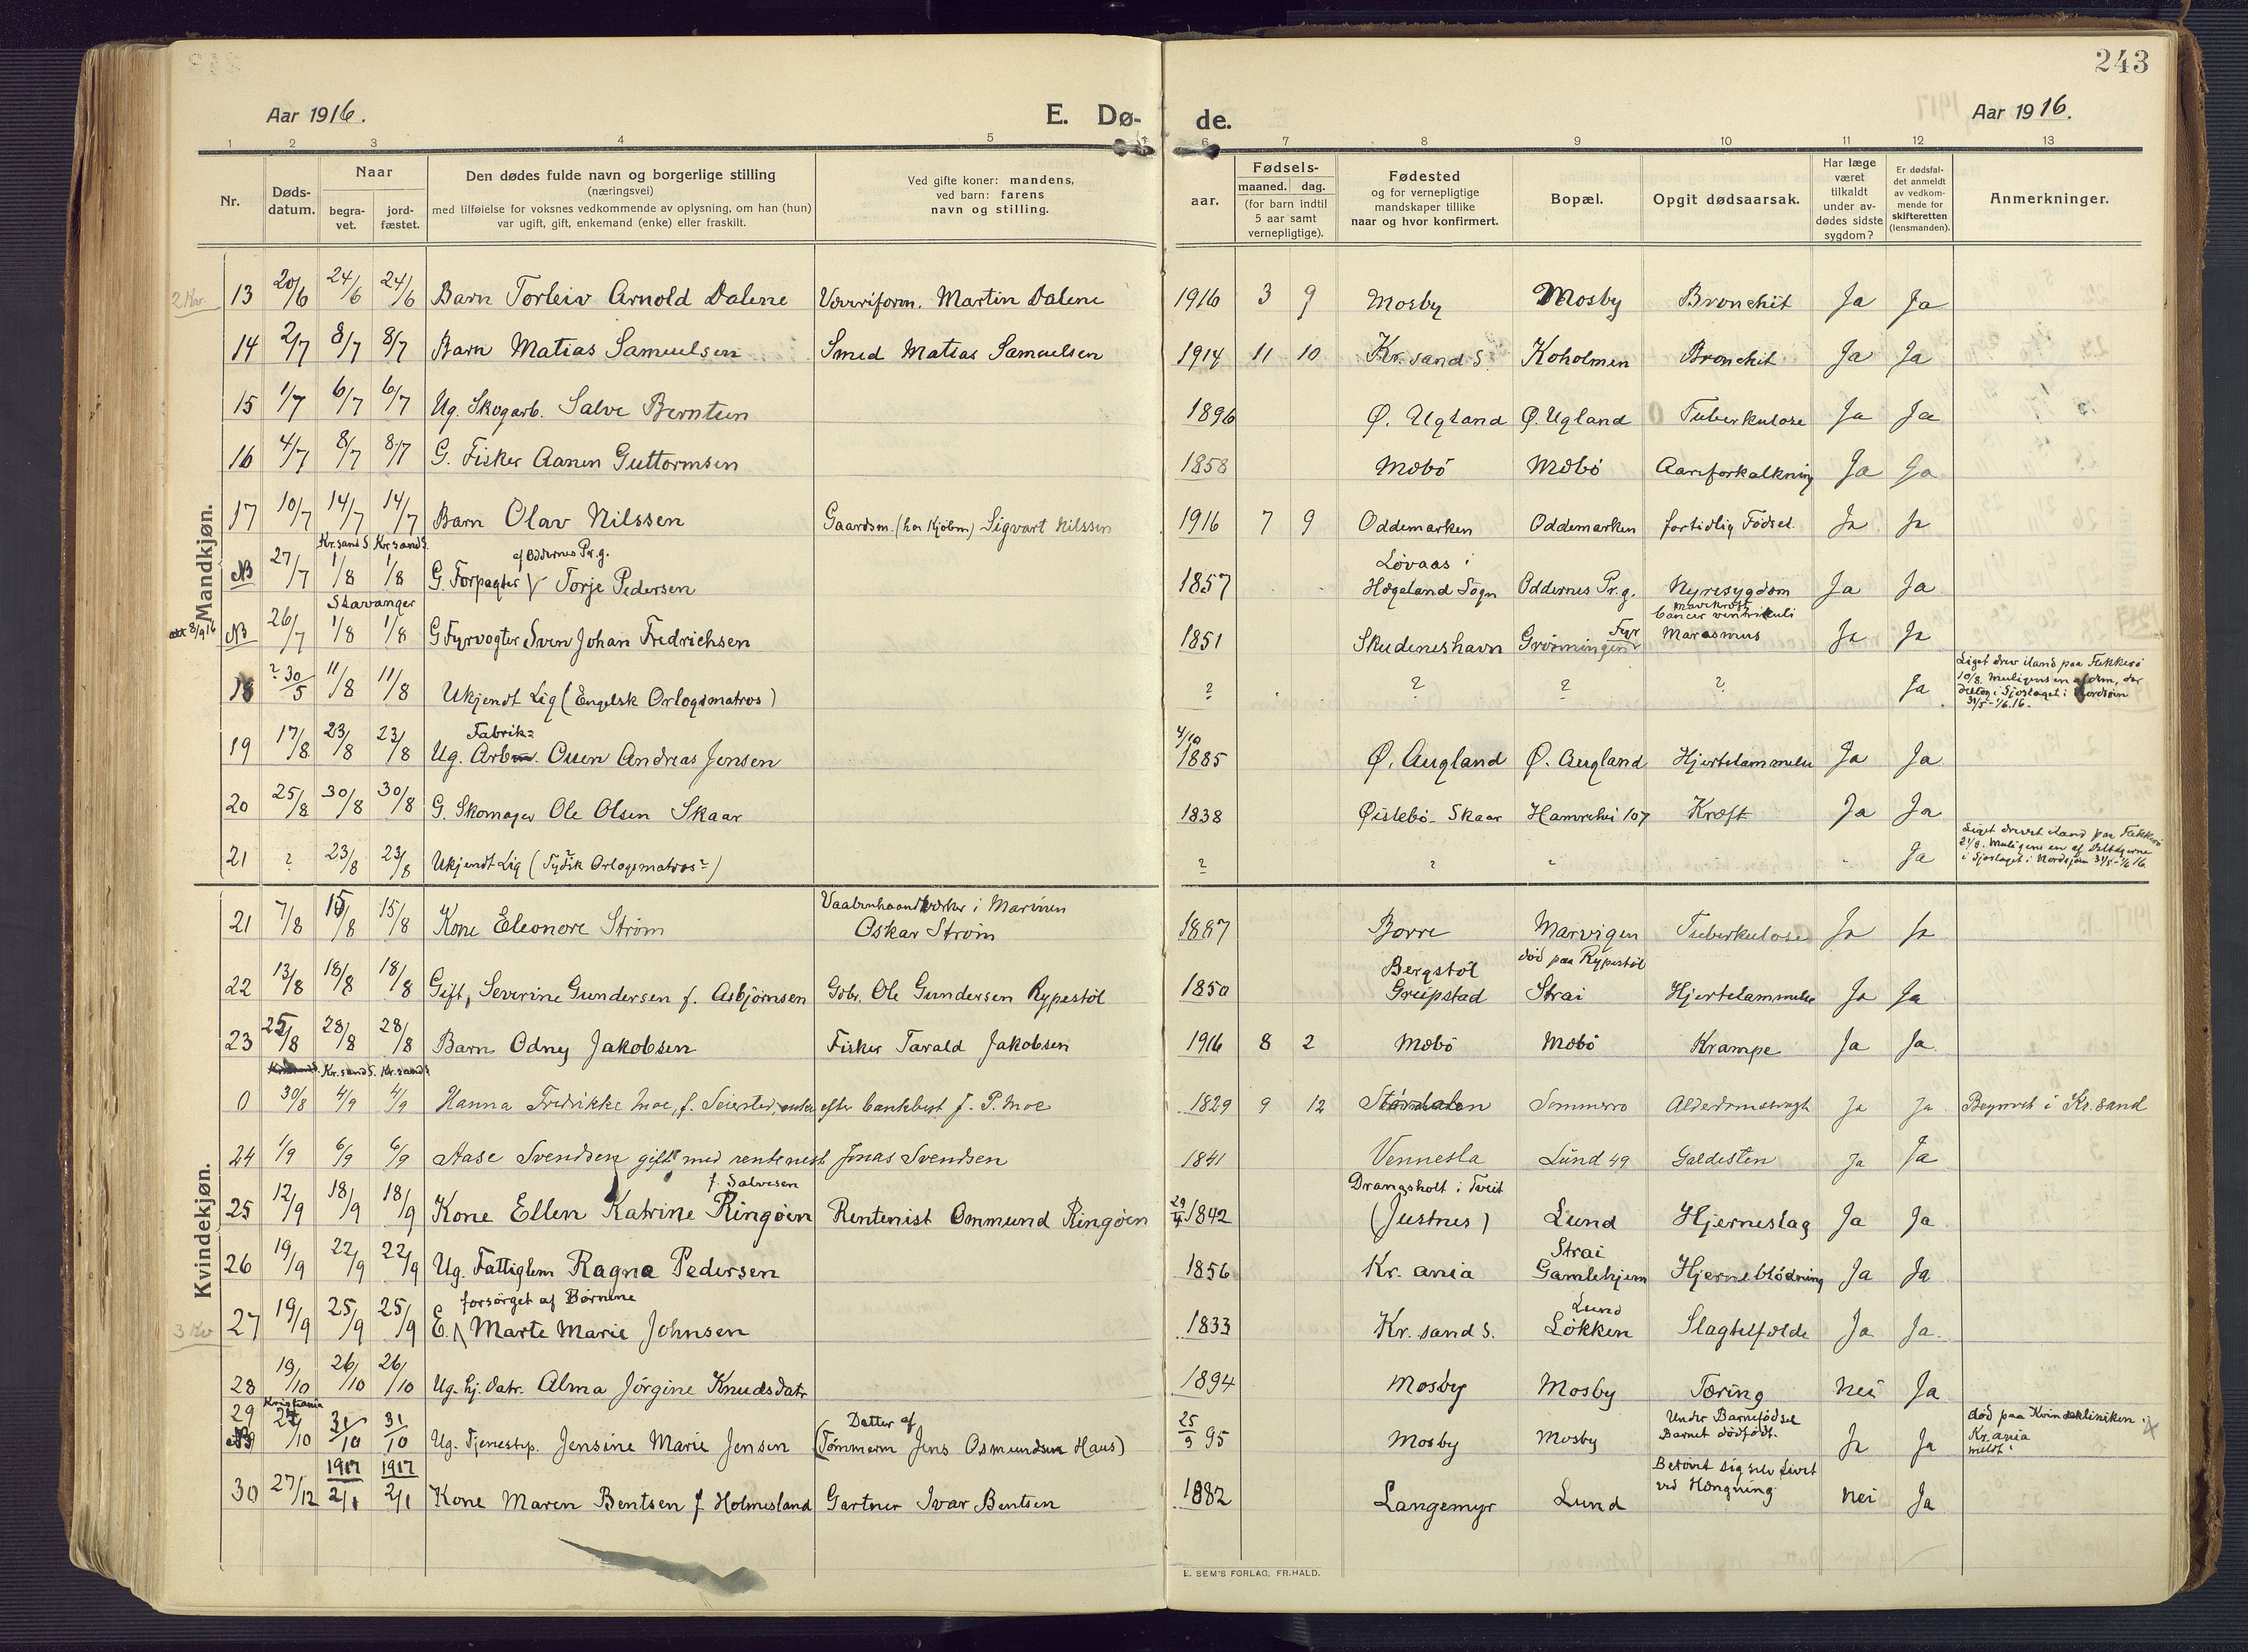 243
Aar 1916.
E. Dø-
de.
Aar 1916.
1 2 3 4 5 6 7 8 9 10 11 12 13
Nr.
Døds-
datum.
Naar
begra-
vet.
jord-
fæstet.
Den dødes fulde navn og borgerlige stilling
(næringsvei)
med tilføielse for voksnes vedkommende av oplysning, om han (hun)
var ugift, gift, enkemand (enke) eller fraskilt.
Ved gifte koner: mandens,
ved barn: farens
navn og stilling.
Fødsels-
aar.
maaned. dag.
(for barn indtil
5 aar samt
vernepligtige).
Fødested
og for vernepligtige
mandskaper tillike
naar og hvor konfirmert.
Bopæl.
Opgit dødsaarsak.
Har læge
været
tilkaldt
under av-
dødes sidste
sygdom?
Er dødsfal-
det anmeldt
av vedkom-
mende for
skifteretten
(lensmanden).
Anmerkninger.
Mandkjøn.
13 20/6 24/6 24/6 Barn Torleiv Arnold DaleneVærriform. Martin Dalene 1916 3 9 Mosby Mosby Bronchit Ja Ja
14 2/7 8/7 8/7 Barn Matias Samuelsen Smed Matias Samuelsen 1914 11 10 Kr.sand S. Koholmen Bronchit Ja Ja
15 1/7 6/7 6/7 Ug. Skogarb. Salve Berntsen 1896 Ø. Ugland Ø. Ugland Tuberkulose Ja Ja
16 4/7 8/7 8/7 G. Fisker Aanen Guttormsen 1858 Mæbö Mæbö Aareforkalkning Ja Ja
17 10/7 14/7 14/7 Barn Olav Nilssen Gaardsm. (før Kjøbm) Sigvart Nilssen 1916 7 9 Oddemarken Oddemarken fortidlig Fødsel Ja Ja
Kr.sand S. Kr.sand S. af Oddernes Pr.g. Løvaas i
NB 27/7 1/8 1/8 G. Forpagter Torje Pedersen 1857 Hægeland Sogn Oddernes Pr.g. Nyresygdom Ja Ja
Stavanger Mavekræft
Cancer ventrikuli
att 8/9 16 NB 26/7 1/8 1/8 G Fyrvogter Sven Johan Fredrichsen 1851 Skudeneshavn Grönningen Fyr Marasmus Ja Ja
18 ? 30/5 11/8 11/8 Ukjendt Lig (Engelsk Orlogsmatros) ? ? ? ? Ja
Liget drev iland paa Flekkerö
10/8. Muligens en af dem, der
deltog i Sjöslaget i Nordsjøen
31/5-1/6.16.
Fabrik= 4/10
19 17/8 23/8 23/8 Ug. Arb. Ouen Andreas Jensen 1885 Ø. Augland Ø. Augland Hjertelammelse Ja Ja
20 25/8 30/8 30/8 G. Skomager Ole Olsen Skaar 1838 Øislebö - Skaar Hamrehei 107 Kræft Ja Ja
21 ? 23/8 23/8 Ukjendt Lig (Tydsk Orlogsmatros?) ? ? Ja
Liget drevet iland paa Flekkerö
21/8. Muligens en af Deltagerne
i Sjøslaget i Nordsjøen 31/5-1/6 16
Kvindekjøn.
Vaabenhaandverker i Marinen
21 7/8 15/8 15/8 Kone Eleonore Ström Oskar Ström 1887 Borre Marvigen Tuberkulose Ja Ja
Bergstöl död paa Rypestöl
22 13/8 18/8 18/8 Gift, Severine Gundersen f. Asbjörnsen Gbr. Ole Gundersen Rypestöl 1850 Greipstad Strai Hjertelammelse Ja Ja
23 25/8 28/8 28/8 Barn Odny Jakobsen Fisker Tarald Jakobsen 1916 8 2 Mæbö Mæbö Krampe Ja Ja
Kr.sand S. Kr.sand S.
0 30/8 4/9 4/9 Hanna Fredrikke Moe, f. Seiersted, enke efter bankbest J. P. Moe 1829 9 12 Størdalen Sommerro Alderdomssvagh Ja Ja Begravet i Kr.sand
24 1/9 6/9 6/9 Aase Svendsen gift med rentenist Jonas Svendsen 1841 Vennesla Lund 49 Galdesten Ja Ja
f. Salvesen Drangsholt i Tveit
25 12/9 18/9 18/9 Kone Ellen Katrine Ringöen Rentenist Ommund Ringöen 29/4 1842 (Justnes) Lund Hjerneslag Ja Ja
Strai
26 19/9 22/9 22/9 Ug. Fattiglem Ragna Pedersen 1856 Kr.ania Gamlehjem Hjerneblödning Ja Ja
forsörget af Börnene Lund
3 Kv 27 19/9 25/9 25/9 E. Marte Marie Johnsen 1833 Kr.sand S. Lökken Slagtilfælde Ja Ja
28 19/10 26/10 26/10 Ug. hj. datr. Alma Jörgine Knudsdatr 1894 Mosby Mosby Tæring Nei Ja
Kristiania
29 24/10 31/10 31/10 Ug. Tjenestep. Jensine Marie Jensen Datter af (Tömmerm Jens Osmundsen Haus) 25/9 95 Mosby Mosby Under Barnefödsel Barnet dödfødt. Ja Ja
død paa Kvindekliniken i
Kr.ania
1917 1917
30 27/12 2/1 2/1 Kone Maren Bentsen f Holmesland Gartner Ivar Bentsen 1882 Langemyr Lund Berövet sig selv Livet ved Hængning Nei Ja
E. SEM'S FORLAG, FR.HALD.